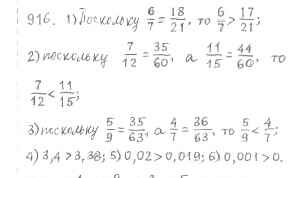 916. 1) Поскольку 6/7 = 18/21, то 6/7 > 17/21;
2) поскольку 7/12 = 35/60, а 11/15 = 44/60, то
7/12 < 11/15;
3) поскольку 5/9 = 35/63, а 4/7 = 36/63, то 5/9 < 4/7;
4) 3,4 > 3,38; 5) 0,02 > 0,019; 6) 0,001 > 0.